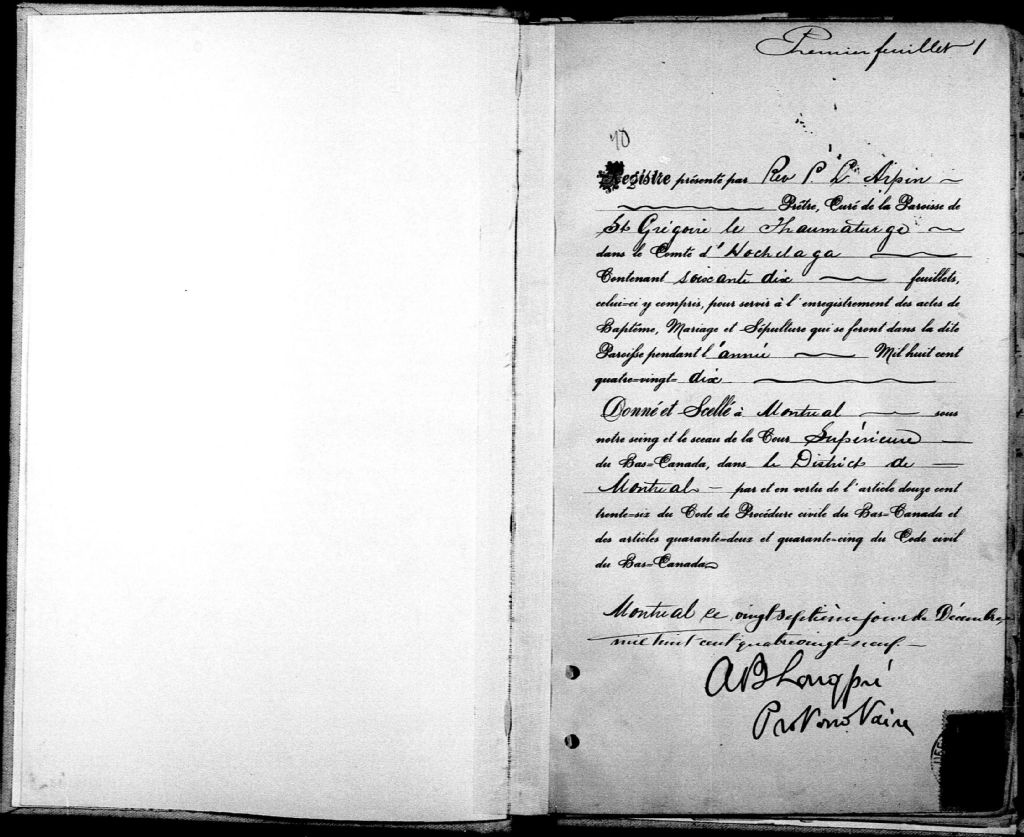 Premier feuillet 1
70
Registre présenté par Rev P. L. Arpin
Prêtre, Curé de la Paroisse de
St Grégoire le Thaumaturge
dans le Comté d'Hochelaga
Contenant soixante dix feuillets,
celui-ci y compris, pour servir à l'enregistrement des actes de
Baptême, Mariage et Sépulture qui se feront dans la dite
Paroisse pendant l'année Mil huit cent
quatre-vingt-dix
Donné et Scellé à Montreal sous
notre seing et le sceau de la Cour Supérieure
du Bas-Canada, dans le District de
Montreal par et en vertu de l'article douze cent
trente-six du Code de Procédure civile du Bas-Canada et
des articles quarante-deux et quarante-cinq du Code civil
du Bas-Canada
Montreal ce vingt septième jour de Décembre,
mil huit cent quatrevingt-neuf.
AB Longpré
Protonotaire